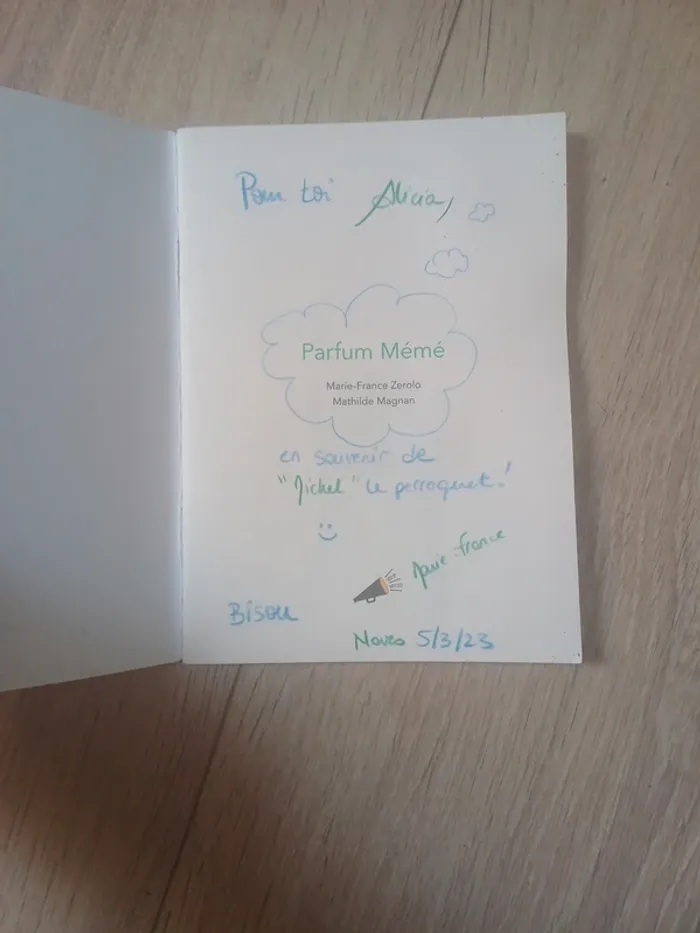 Pour toi Alicia,
Parfum Mémé
Marie-France Zerolo
Mathilde Magnan
en souvenir de
"Michel" le perroquet!
Marie-France
Bisou
Noves 5/3/23